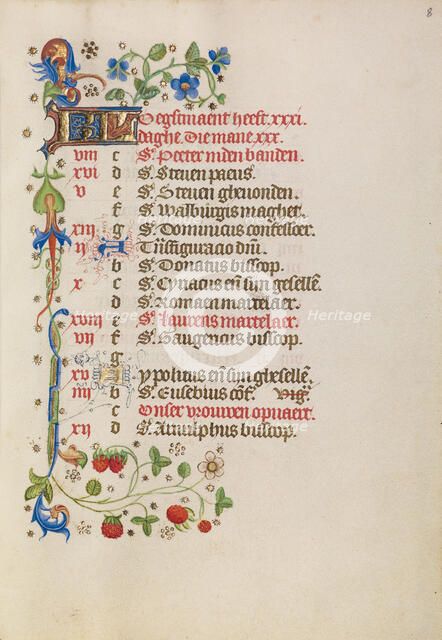 8
KL Oegstmaent heeft .xxxi.
daghe. Die mane .xxx.
viii c Ste Peeter inden banden.
xvi d Ste Steven paeus.
v e Ste Steven ghevonden.
f Ste Walburgis maghet.
xiii g Ste Dominicus confessoer.
ii A Trāsfiguracio dnī.
b Ste Donatus bisscop.
x c Ste Cyriacus en̄ sijn ghesellē.
d Ste Romaen martelaer.
xviii e Ste Laureins martelaer.
vii f Ste Gaugericus bisscop.
g
xv A ypolitus en̄ sijn ghesellē.
iiii b Ste Eusebius cōf. Vig.
c Onser vrouwen opvaert.
xii d Ste Arnulphus bisscop.
heritage
Heritage
Images